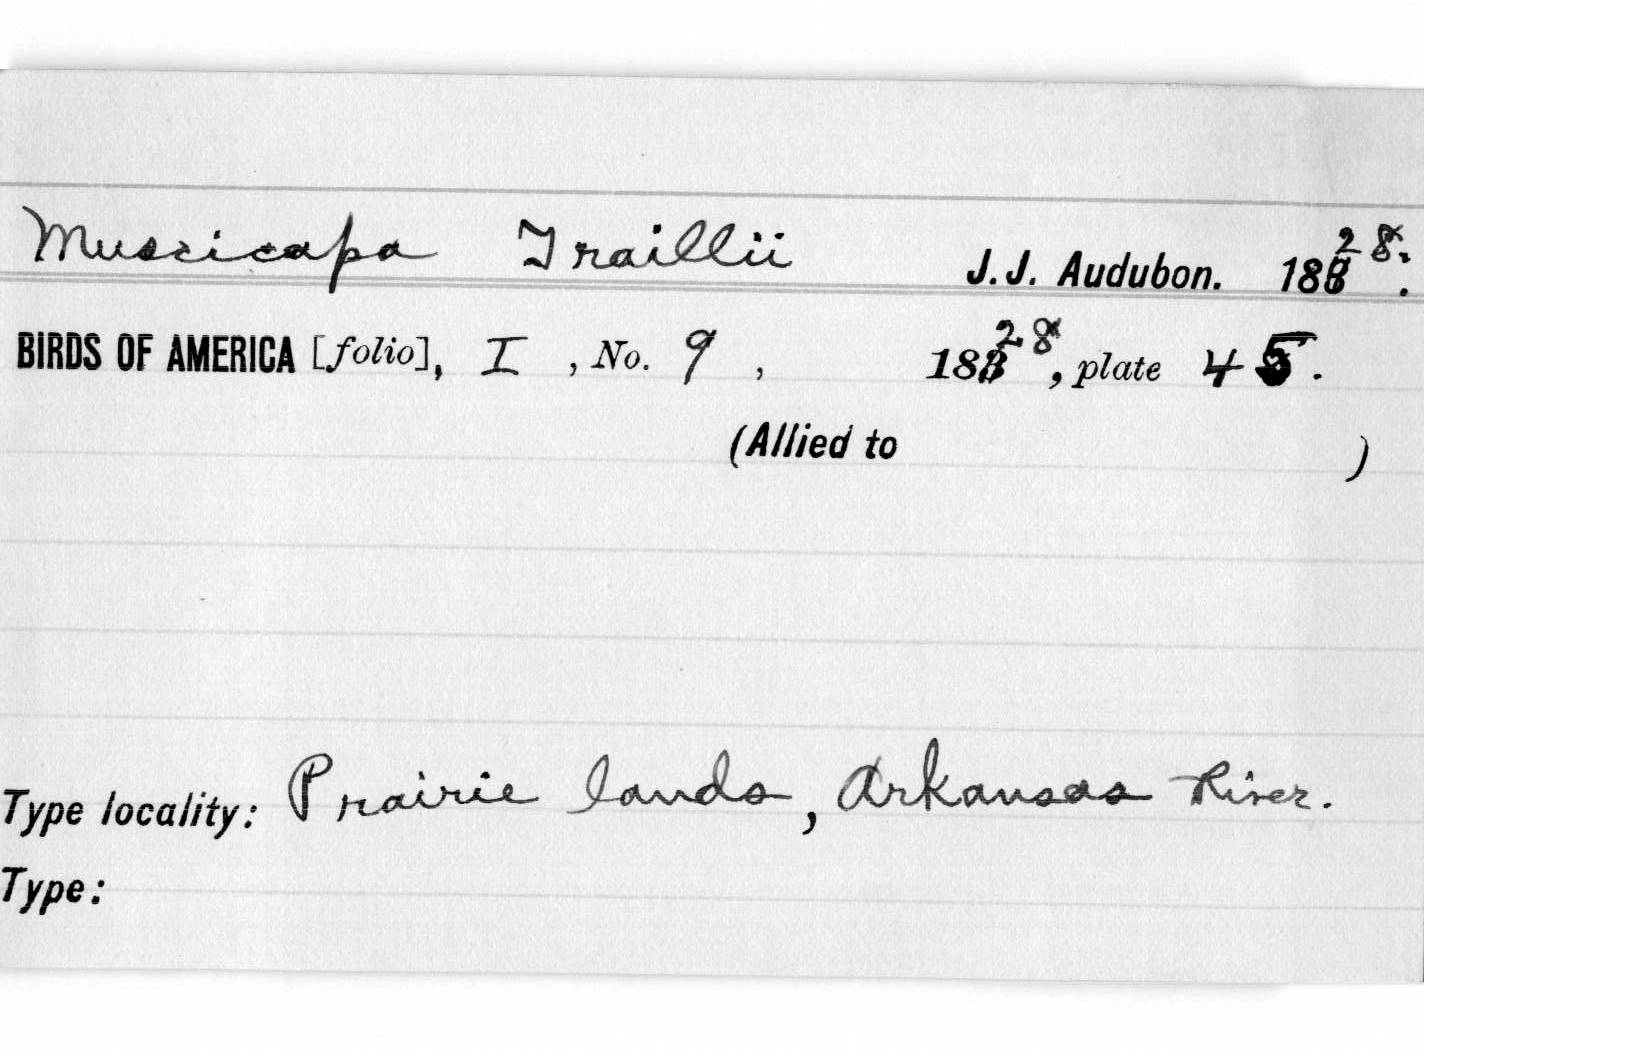 Muscicapa Traillii J. J. Audubon. 1828.
BIRDS OF AMERICA [folio], I, No. 9, 1828, plate 45.
(Allied to )
Type locality: Prairie lands, Arkansas River.
Type: